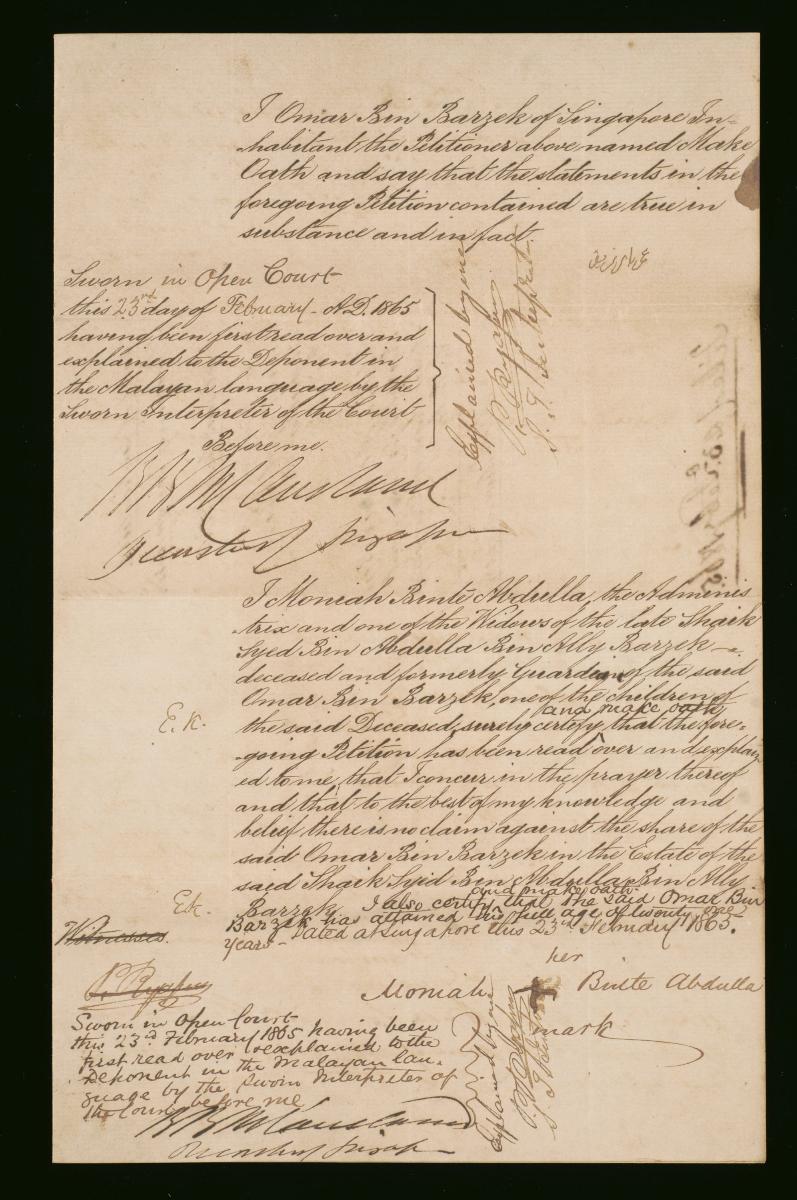 I Omar Bin Barzek of Singapore In-
habitant the Petitioner above named Make
Oath and say that the statements in the
foregoing Petition contained are true in
substance and in fact
Sworn in Open Court
this 23rd day of February A.D. 1865
having been first read over and
explained to the Deponent in
the Malayan language by the
Sworn Interpreter of the Court
Before me.
Explained by me
R B McCausland
I Moniah Binte Abdulla, the Adminis
trix and one of the Widows of the late Shaik
Syed Bin Abdulla Bin Ally Barzek
deceased and formerly Guardian of the said
Omar Bin Barzek, one of the children of
and make oath
the said Deceased, surely certify that the fore-
E.K.
going Petition has been read over and explain
ed to me, that I concur in the prayer thereof
and that to the best of my knowledge and
belief there is no claim against the share of the
said Omar Bin Barzek in the Estate of the
said Shaik Syed Bin Abdulla Bin Ally
and make oath
Barzek I also certify that the said Omar Bin
E.K.
Barzek has attained his full age of twenty one
years - Dated at Singapore this 23rd February 1865.
Witnesses
her
Moniah Binte Abdulla
mark
Sworn in Open Court
this 23rd February 1865 having been
first read over & explained to the
Deponent in the Malayan lan-
guage by the Sworn Interpreter of
the Court before me
Explained by me
R B McCausland